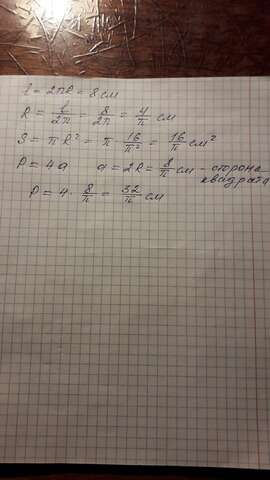 l = 2πR = 8 см
R = l/2π = 8/2π = 4/π см
S = πR² = π · 16/π² = 16/π см²
P = 4a a = 2R = 8/π см - сторона квадрата
P = 4 · 8/π = 32/π см